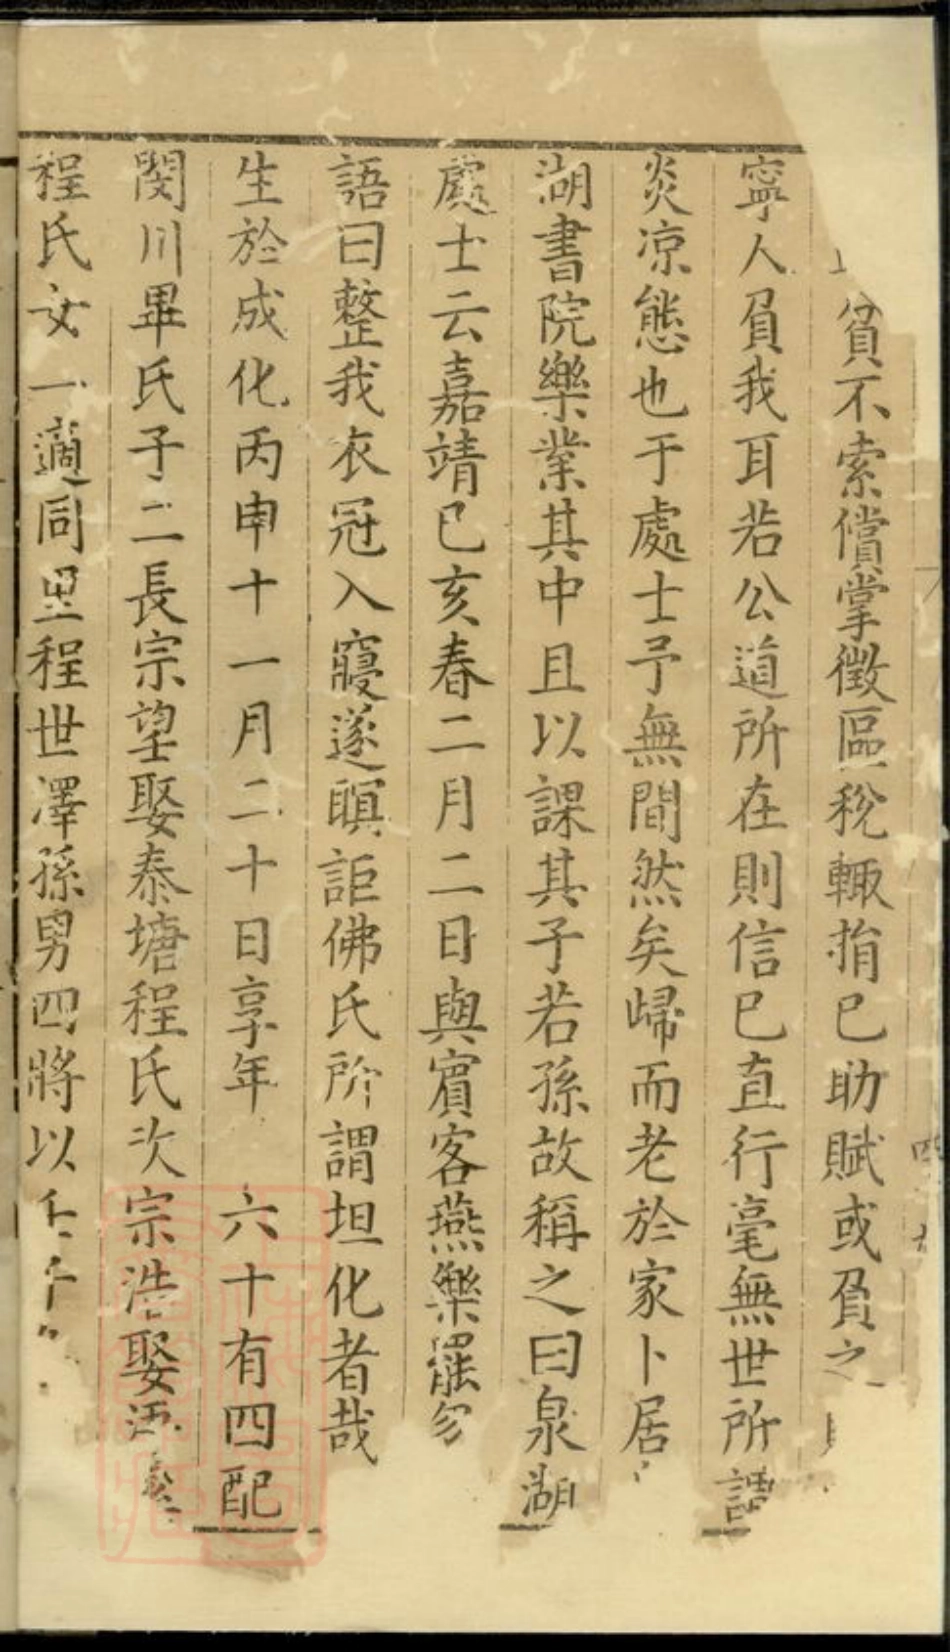 貧不索償掌徵區稅輙捐已助賦或負之
寧人負我耳若公道所在則信已直行毫無世所謂
炎凉態也于處士予無間然矣歸而老於家卜居
湖書院樂業其中且以課其子若孫故稱之曰泉湖
處士云嘉靖已亥春二月二日與賓客燕樂罷勿
語曰整我衣冠入寢遂瞑詎佛氏所謂坦化者哉
生於成化丙申十一月二十日享年六十有四配
閔川畢氏子二長宗望娶泰塘程氏次宗浩娶
程氏女一適同里程世澤孫男四將以